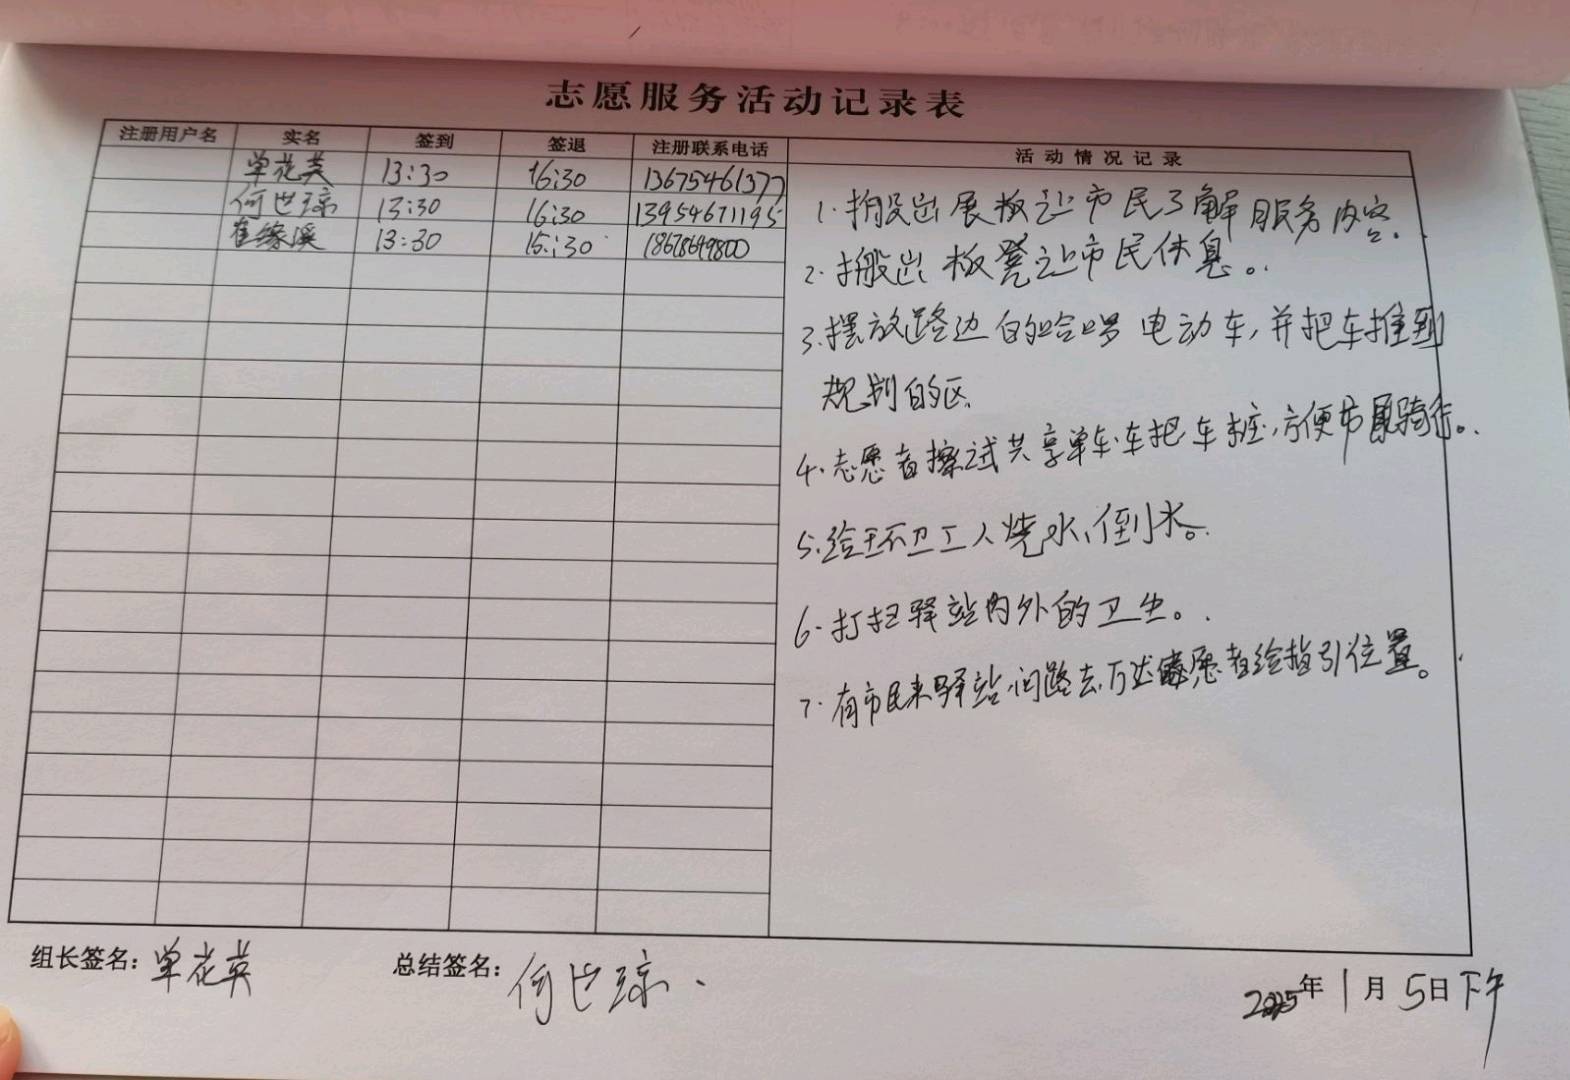 志愿服务活动记录表
注册用户名 实名 签到 签退 注册联系电话 活动情况记录
单花英 13:30 16:30 13675461377
何世琼 13:30 16:30 13954671195
崔缘溪 13:30 15:30 18678649800
1.搬出展板让市民了解服务内容。
2.搬出板凳让市民休息。
3.摆放路边的哈啰电动车,并把车推到
规划的区
4.志愿者擦试共享单车车把车桩,方便市民骑行。
5.给环卫工人烧水,倒水。
6.打扫驿站内外的卫生。
7.有市民来驿站问路去万达 志愿者给指引位置。
组长签名:单花英 总结签名:何世琼
2025年1月5日下午